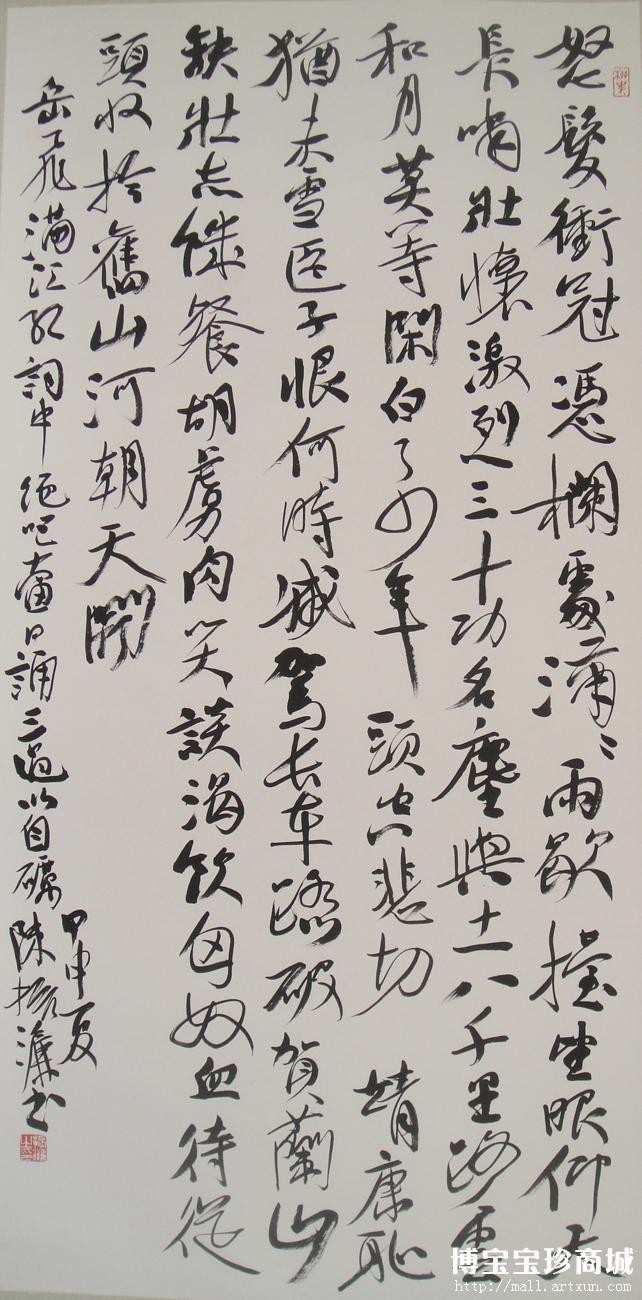 怒髮衝冠憑欄處瀟〻雨歇擡望眼仰天
長嘯壯懷激烈三十功名塵與土八千里路雲
和月莫等閑白了少年頭空悲切 靖康恥
猶未雪臣子恨何時滅駕長車踏破賀蘭山
缺壯志饑餐胡虜肉笑談渴飲匈奴血待從
頭收拾舊山河朝天闕
岳飛滿江紅詞中絕唱當日誦三過以自礪
甲申夏
陳振濂書
博宝宝珍商城
http://mall.artxun.com